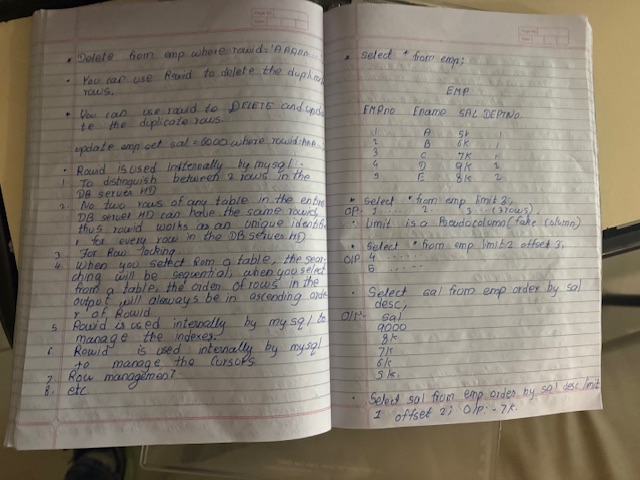 • Delete from emp where rowid='AAAAA...
• You can use Rowid to delete the duplicate
rows.
• You can use rowid to DELETE and upda
te the duplicate rows.
update emp set sal = 6000 where rowid=
• Rowid is used internally by mysql :-
1. To distinguish between 2 rows in the
DB server HD
2. No two rows of any table in the entire
DB server HD can have the same rowid,
thus rowid works as an unique identifie
r for every row in the DB server HD
3 For Row locking
4. When you select from a table, the sear
ching will be sequential, when you select
from a table, the order of rows in the
output will always be in ascending orde
r of Rowid.
5 Rowid is used internally by mysql to
manage the indexes.
6 Rowid is used internally by mysql
to manage the cursors
7. Row management
8. etc
• select * from emp;
EMP
EMPno Ename SAL DEPTNO
1 A 5k 1
2 B 6k 1
3 C 7k 1
4 D 9k 2
5 E 8k 2
• select * from emp limit 3;
OP- 1 ..... 2 ..... 3 ... (3 rows).
• Limit is a Pseudocolumn (fake column)
• Select * from emp limit 2 offset 3;
O/P 4 ......
5 ......
• Select sal from emp order by sal
desc;
O/P:- sal
9000
8k
7k
6k
5k.
• Select sal from emp order by sal desc limit
1 offset 2; O/p:- 7k.